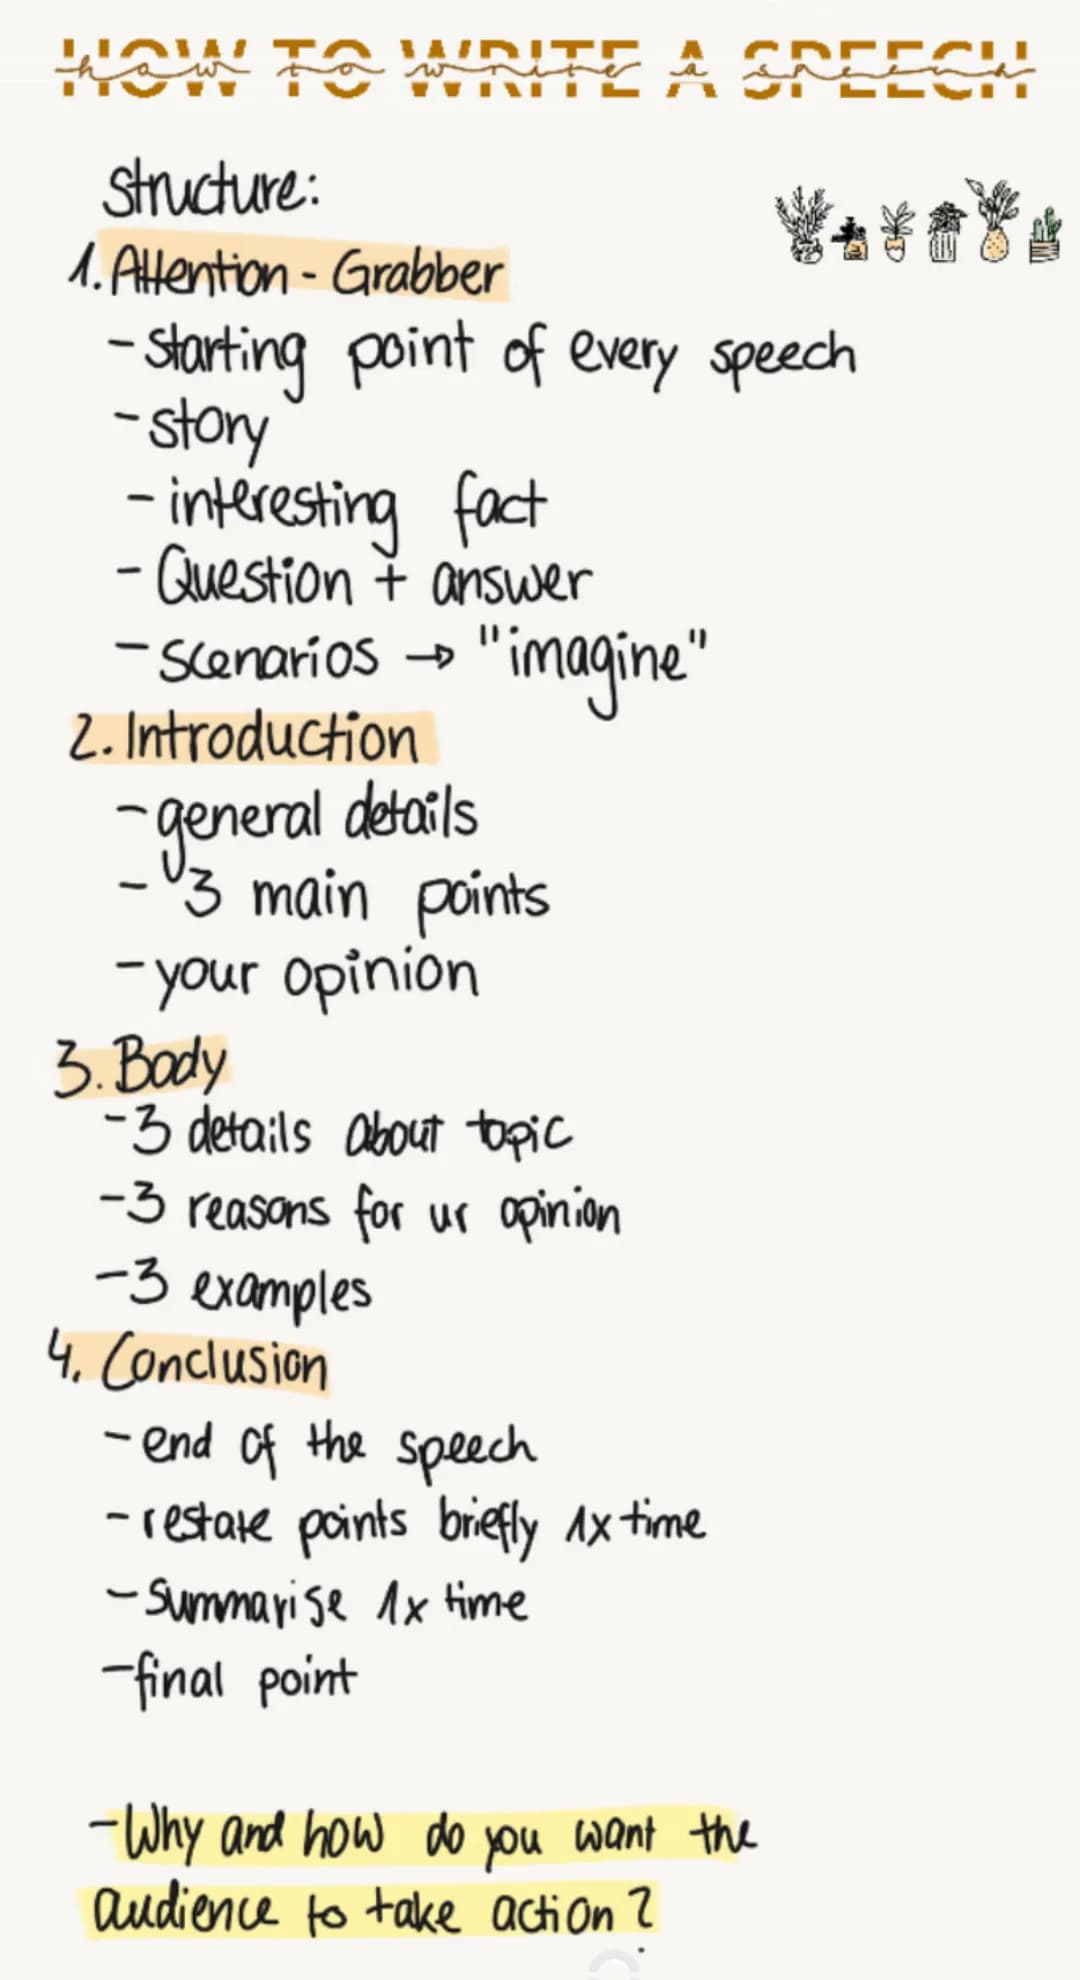 HOW TO WRITE A SPEECH
how to write a speech
structure:
1. Attention - Grabber
- starting point of every speech
- story
- interesting fact
- Question + answer
- scenarios → "imagine"
2. Introduction
- general details
- 3 main points
- your opinion
3. Body
- 3 details about topic
- 3 reasons for ur opinion
- 3 examples
4. Conclusion
- end of the speech
- restate points briefly 1x time
- summarise 1x time
- final point
- Why and how do you want the
audience to take action?